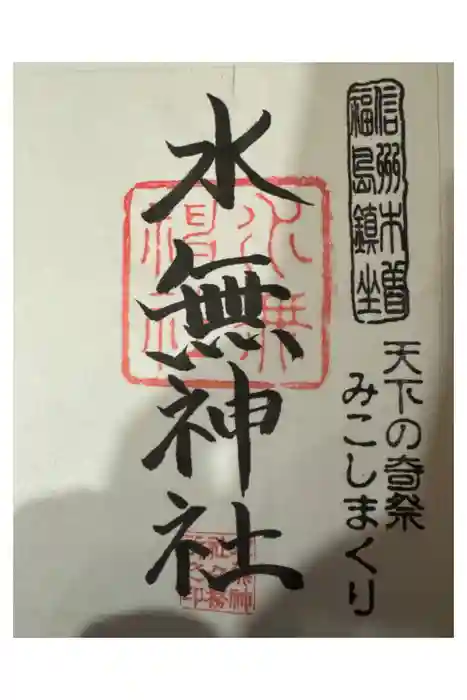 信州木曽
福島鎮坐
天下の奇祭
みこしまくり
水無神社